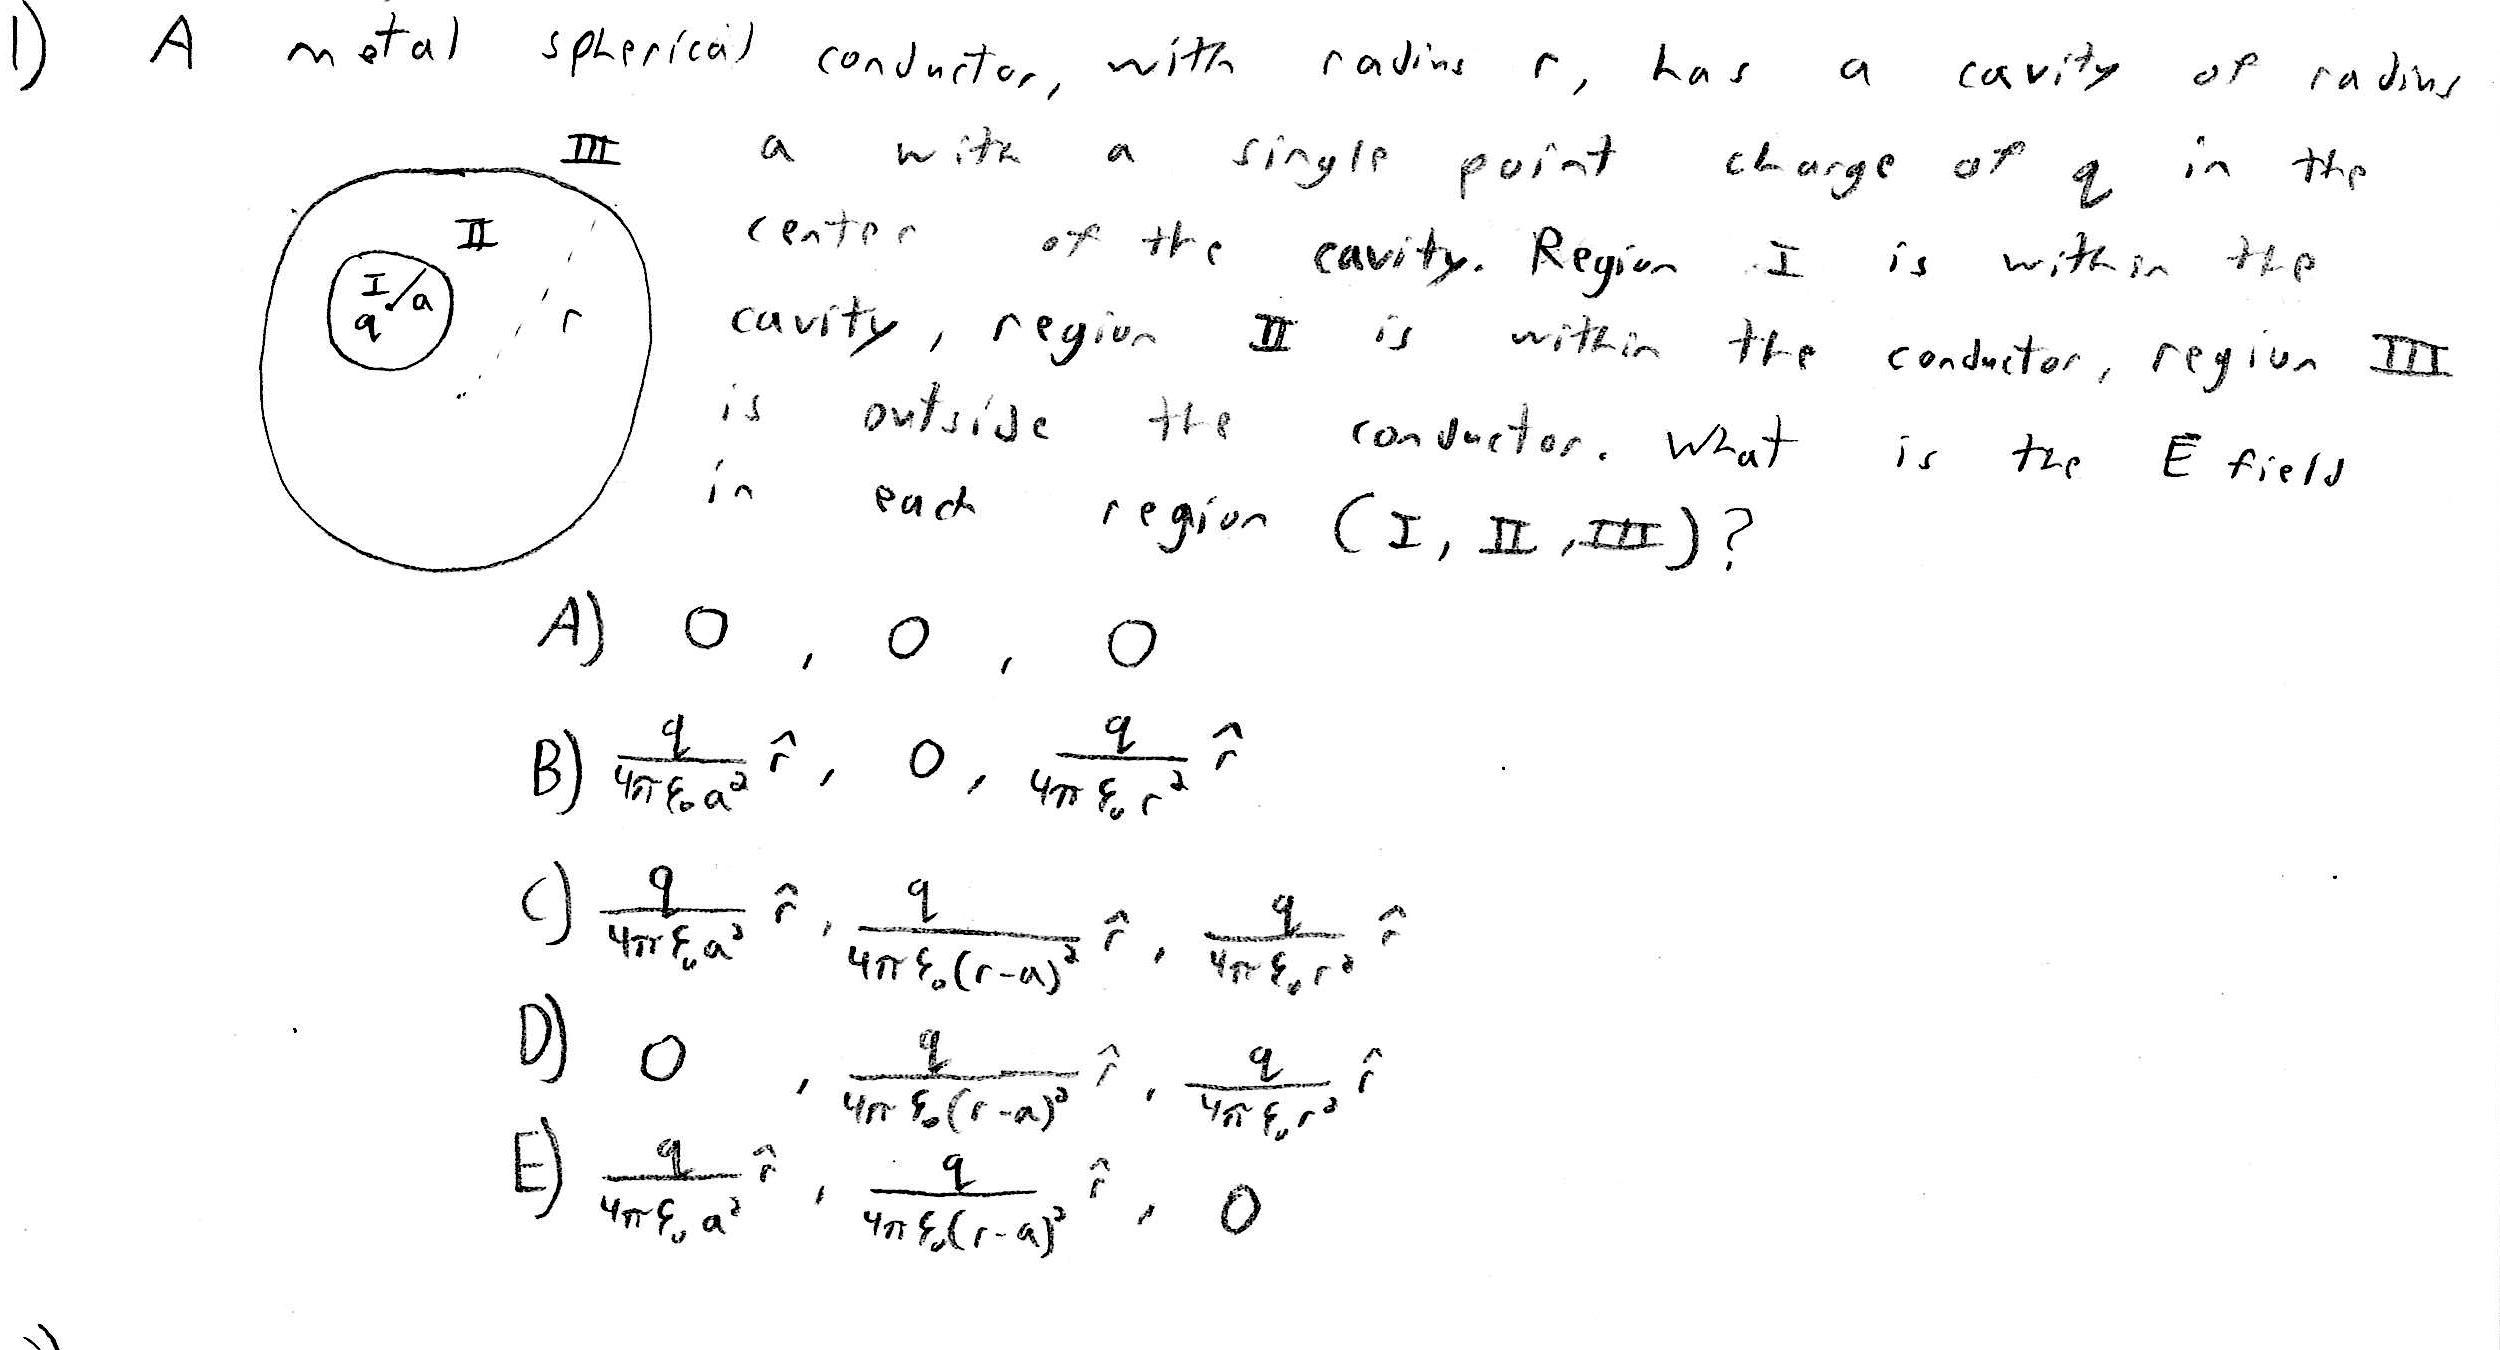 1) A metal spherical conductor, with radius r, has a cavity of radius
III a with a single point charge of q in the
II center of the cavity. Region I is within the
I a q r cavity, region II is within the conductor, region III
is outside the conductor. What is the E field
in each region (I, II, III)?
A) 0, 0, 0
B) q/(4πε₀a²) r̂, 0, q/(4πε₀r²) r̂
C) q/(4πε₀a²) r̂, q/(4πε₀(r-a)²) r̂, q/(4πε₀r²) r̂
D) 0, q/(4πε₀(r-a)²) r̂, q/(4πε₀r²) r̂
E) q/(4πε₀a²) r̂, q/(4πε₀(r-a)²) r̂, 0